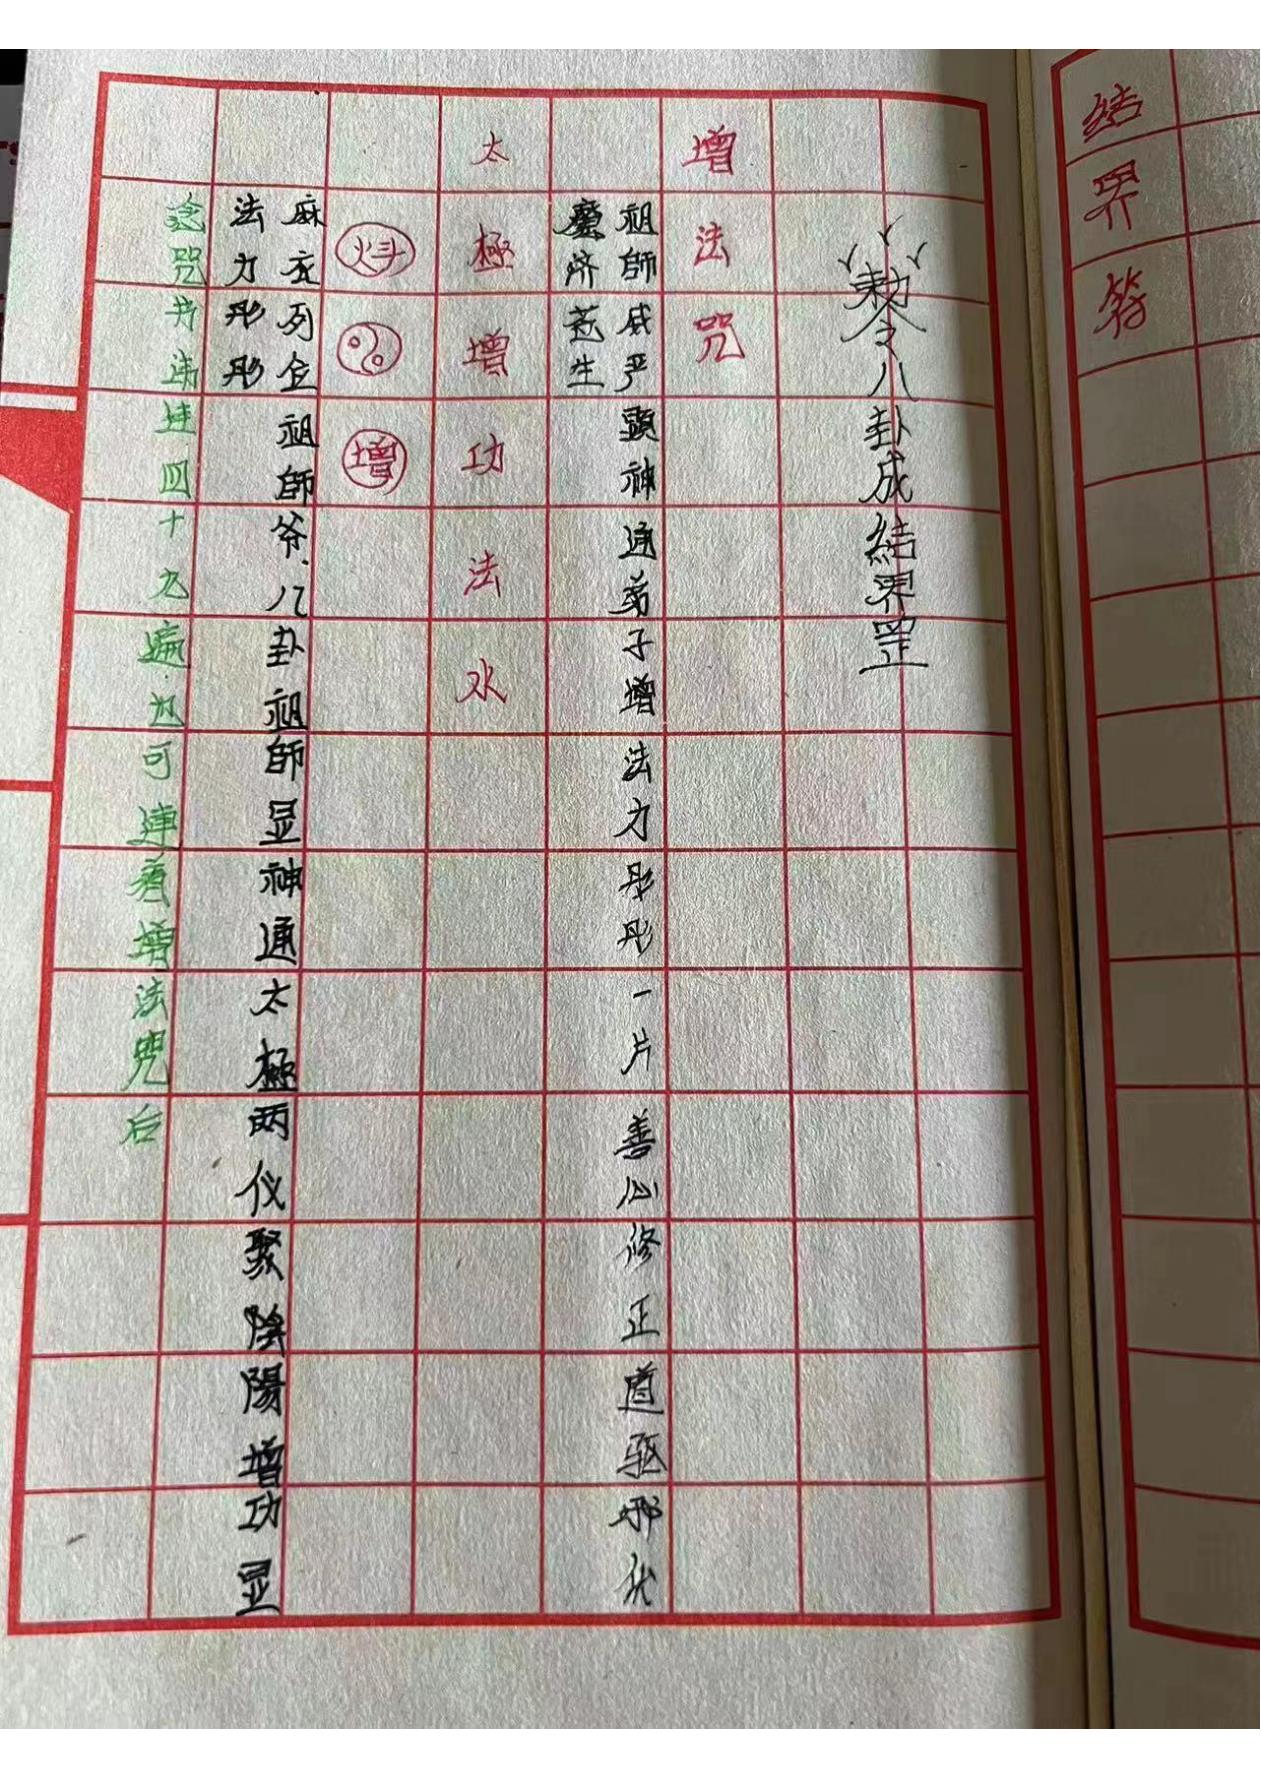 结界符
敕令八卦成結界罡
增法咒
祖師威严顕神通弟子增法力彤彤一片善心修正道驱邪伏
魔济苍生
太極增功法水
增
麻衣列位祖師爷八卦祖師显神通太極两仪聚陰陽增功显
法力彤彤
念咒书讳连四十九遍也可連着增法咒后